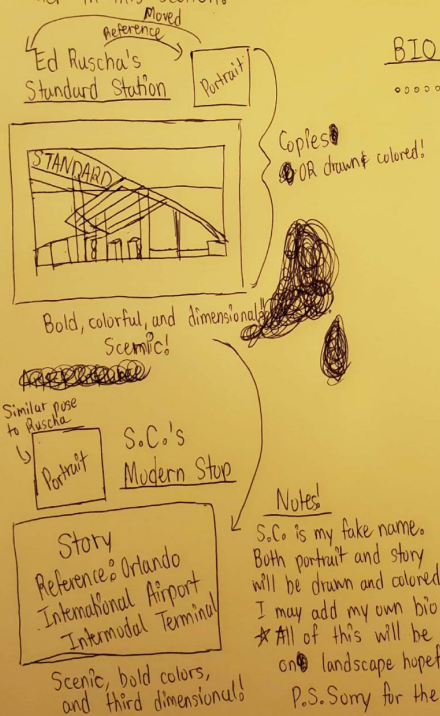 in this section.
Moved
Reference
Ed Ruscha's
Standard Station
Portrait
BIO
STANDARD
Copies
OR drawn & colored!
Bold, colorful, and dimensional!
Scenic!
Similar pose
to Ruscha
Portrait
S.C.'s
Modern Stop
Story
Reference: Orlando
International Airport
Intermodal Terminal
Scenic, bold colors,
and third dimensional!
Notes!
S.C. is my fake name.
Both portrait and story
will be drawn and colored
I may add my own bio
*All of this will be
on landscape
P.S. Sorry for the